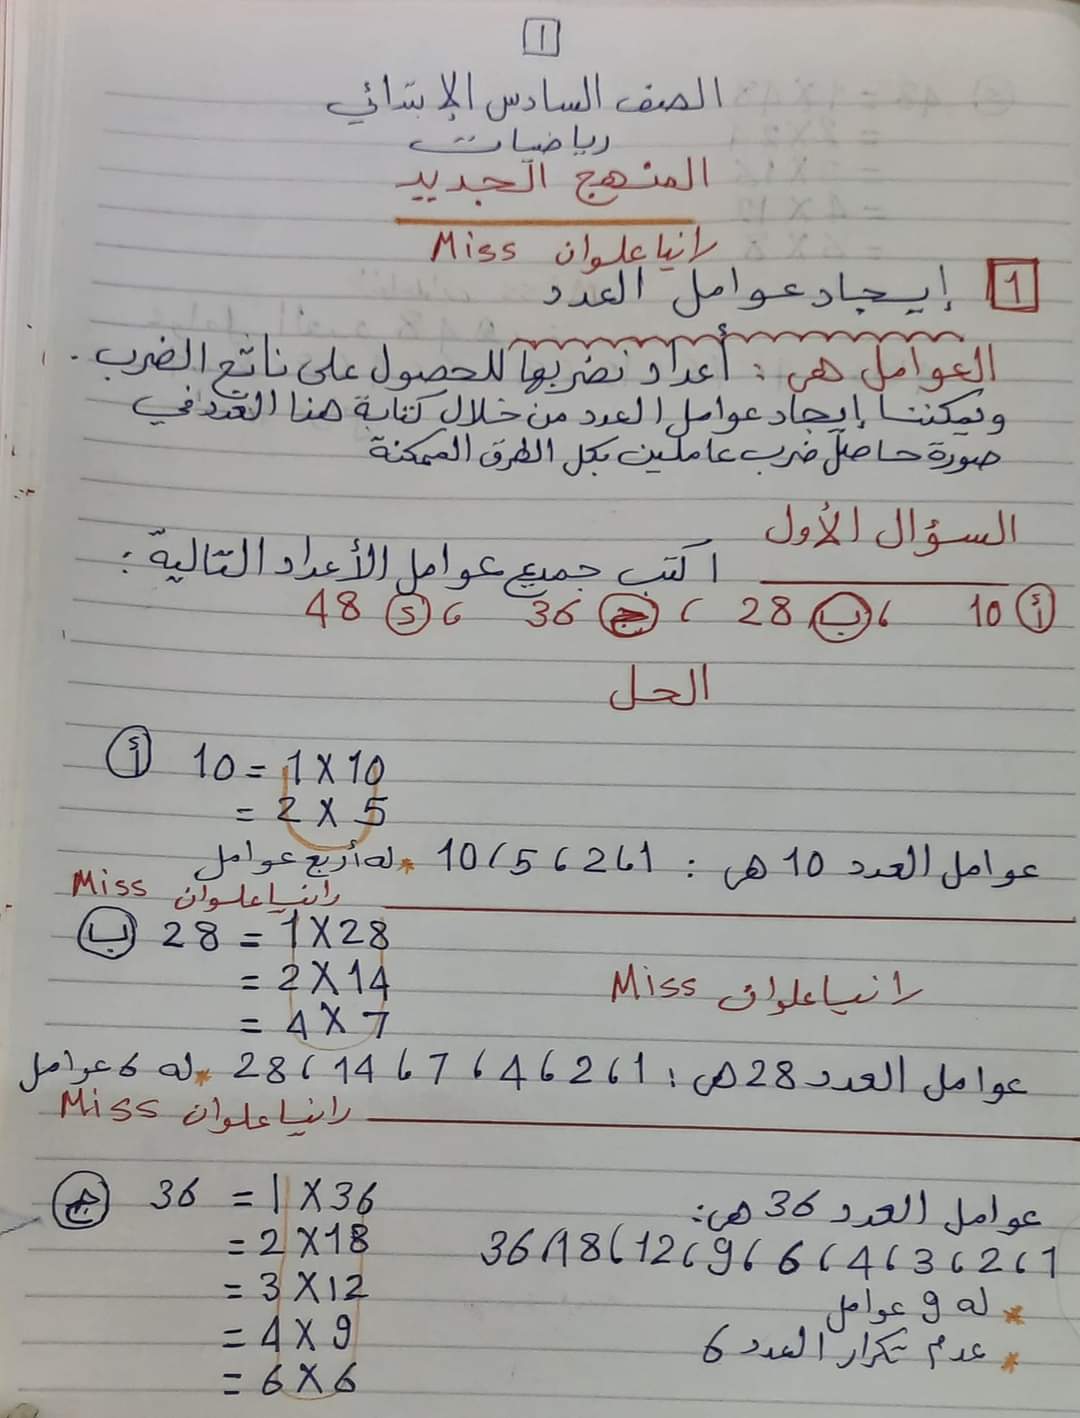 1
الصف السادس الإبتدائي
رياضيات
المنهج الجديد
Miss رانيا علوان
1 إيجاد عوامل العدد
العوامل هى : أعداد نضربها للحصول على ناتج الضرب .
ويمكننا إيجاد عوامل العدد من خلال كتابة هذا العدد في
صورة حاصل ضرب عاملين بكل الطرق الممكنة
السؤال الأول
اكتب جميع عوامل الأعداد التالية :
أ 10 ، ب 28 ، ج 36 ، د 48
الحل
أ 10 = 1 X 10
= 2 X 5
عوامل العدد 10 هى : 1 ، 2 ، 5 ، 10 * له أربع عوامل
Miss رانيا علوان
ب 28 = 1 X 28
= 2 X 14
Miss رانيا علوان
= 4 X 7
عوامل العدد 28 هى : 1 ، 2 ، 4 ، 7 ، 14 ، 28 * له 6 عوامل
Miss رانيا علوان
ج 36 = 1 X 36
= 2 X 18
= 3 X 12
= 4 X 9
= 6 X 6
عوامل العدد 36 هى:
1 ، 2 ، 3 ، 4 ، 6 ، 9 ، 12 ، 18 ، 36
* له 9 عوامل
* عدم تكرار العدد 6